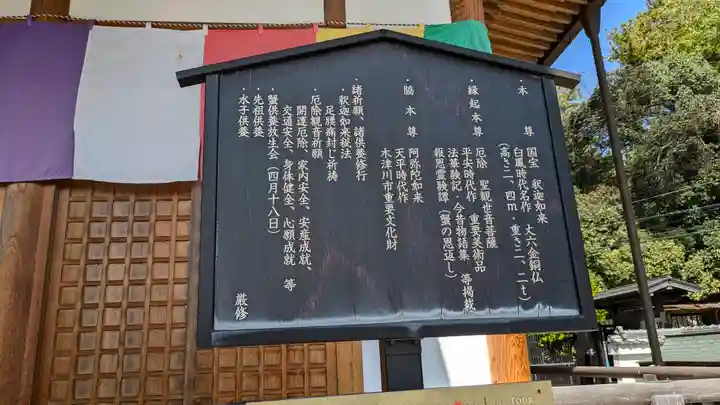 ・本尊 国宝 釈迦如来 大六金銅仏
白鳳時代名作
(高さ二、四m・重さ二、二t)
・縁起本尊 厄除 聖観世音菩薩
平安時代作 重要美術品
法華験記・今昔物語集 等掲載
報恩霊験譚・(蟹の恩返し)
・脇本尊 阿弥陀如来
天平時代作
木津川市重要文化財
・諸祈願、諸供養修行
・釈迦如来秘法
足腰痛封じ祈祷
・厄除観音祈願
開運厄除、家内安全、安産成就、
交通安全、身体健全、心願成就 等
・蟹供養放生会(四月十八日)
・先祖供養
・水子供養
厳修
TOUR